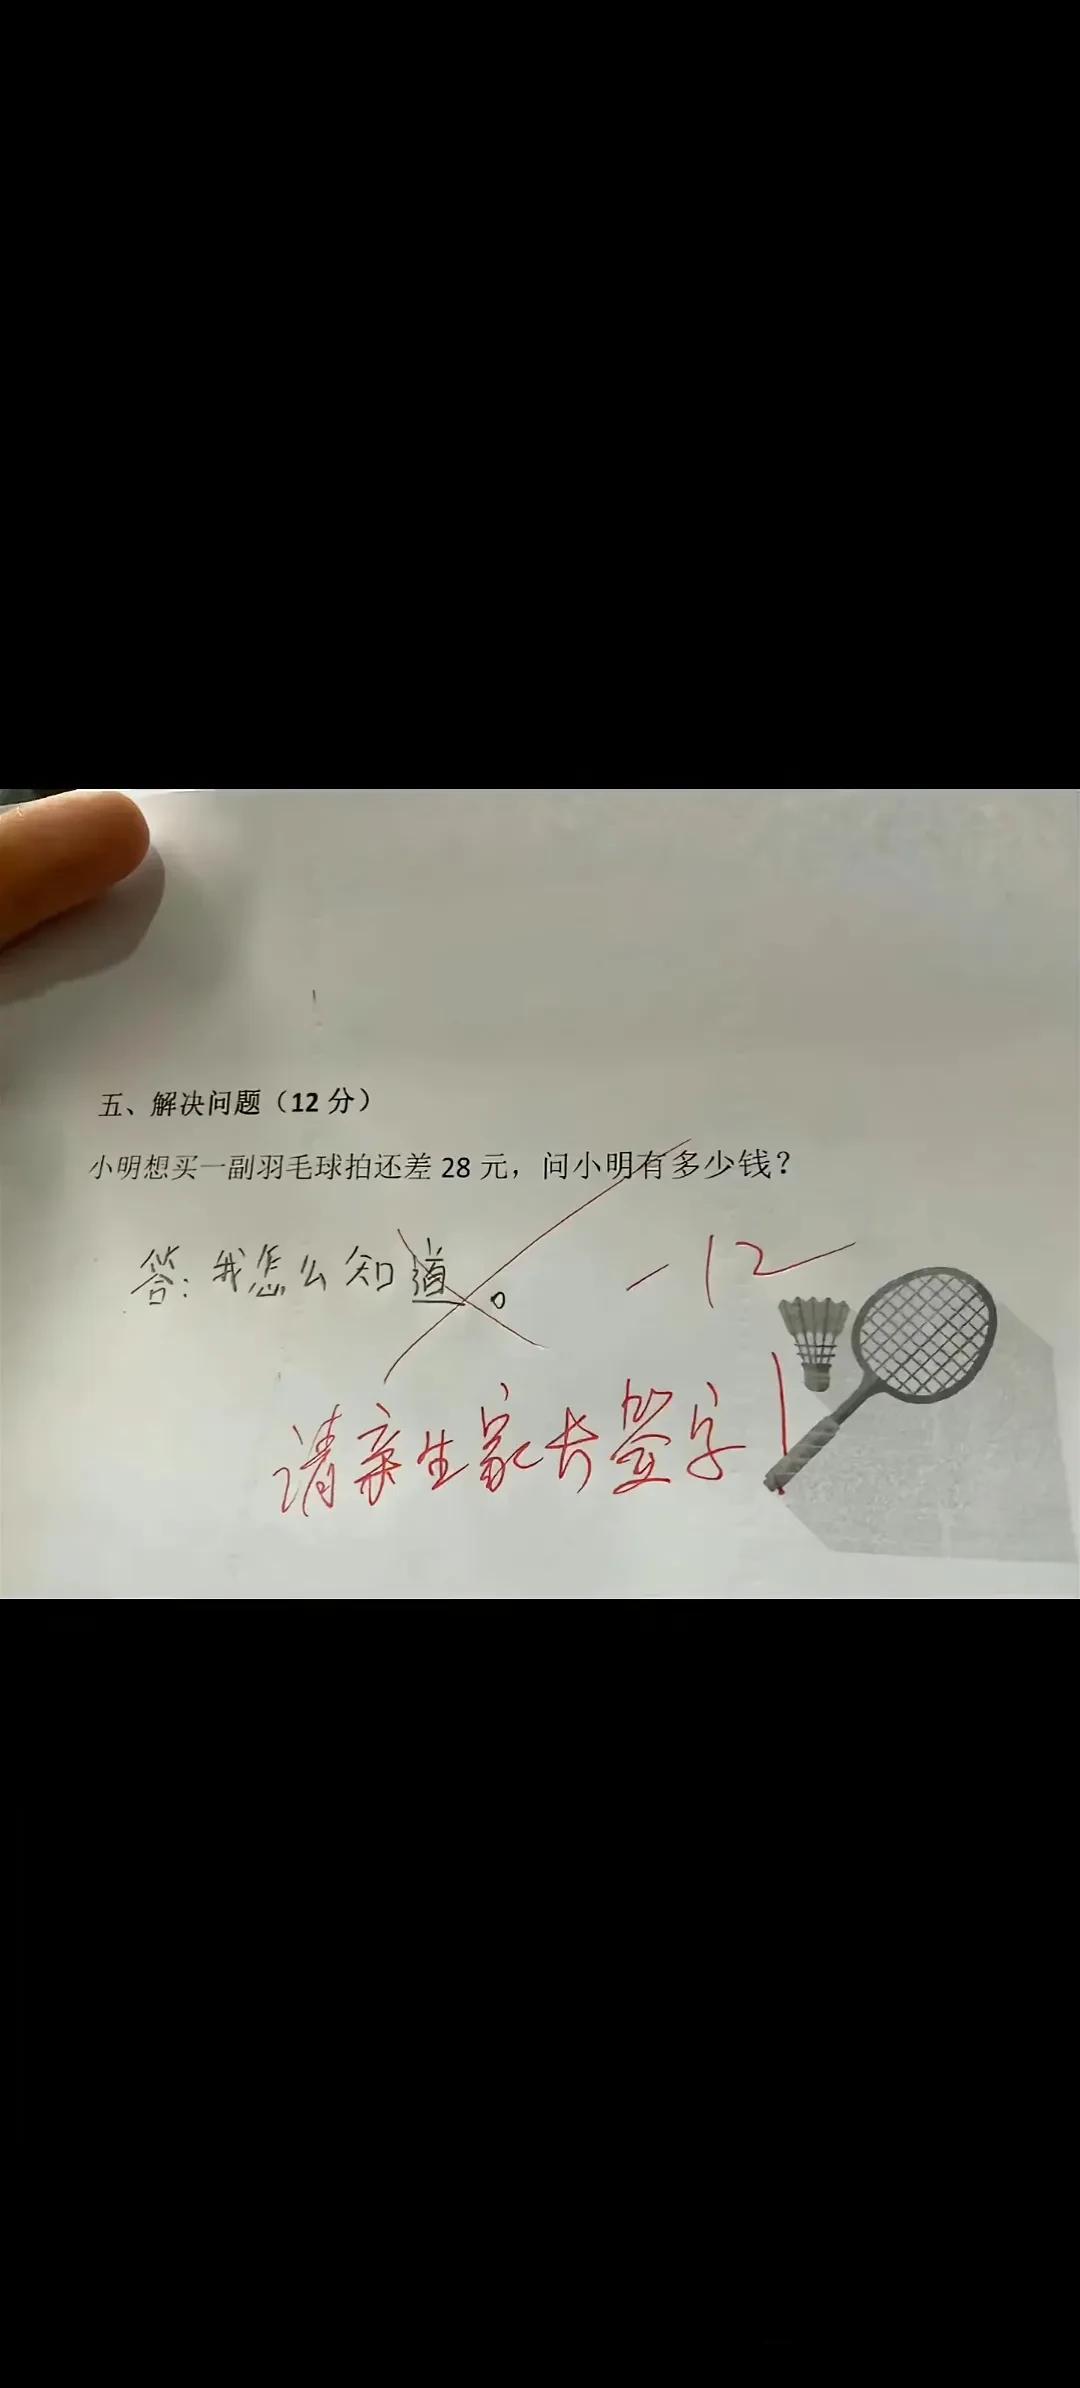 五、解决问题（12 分）
小明想买一副羽毛球拍还差 28 元，问小明有多少钱？
答：我怎么知道。
-12
请亲生家长签字！